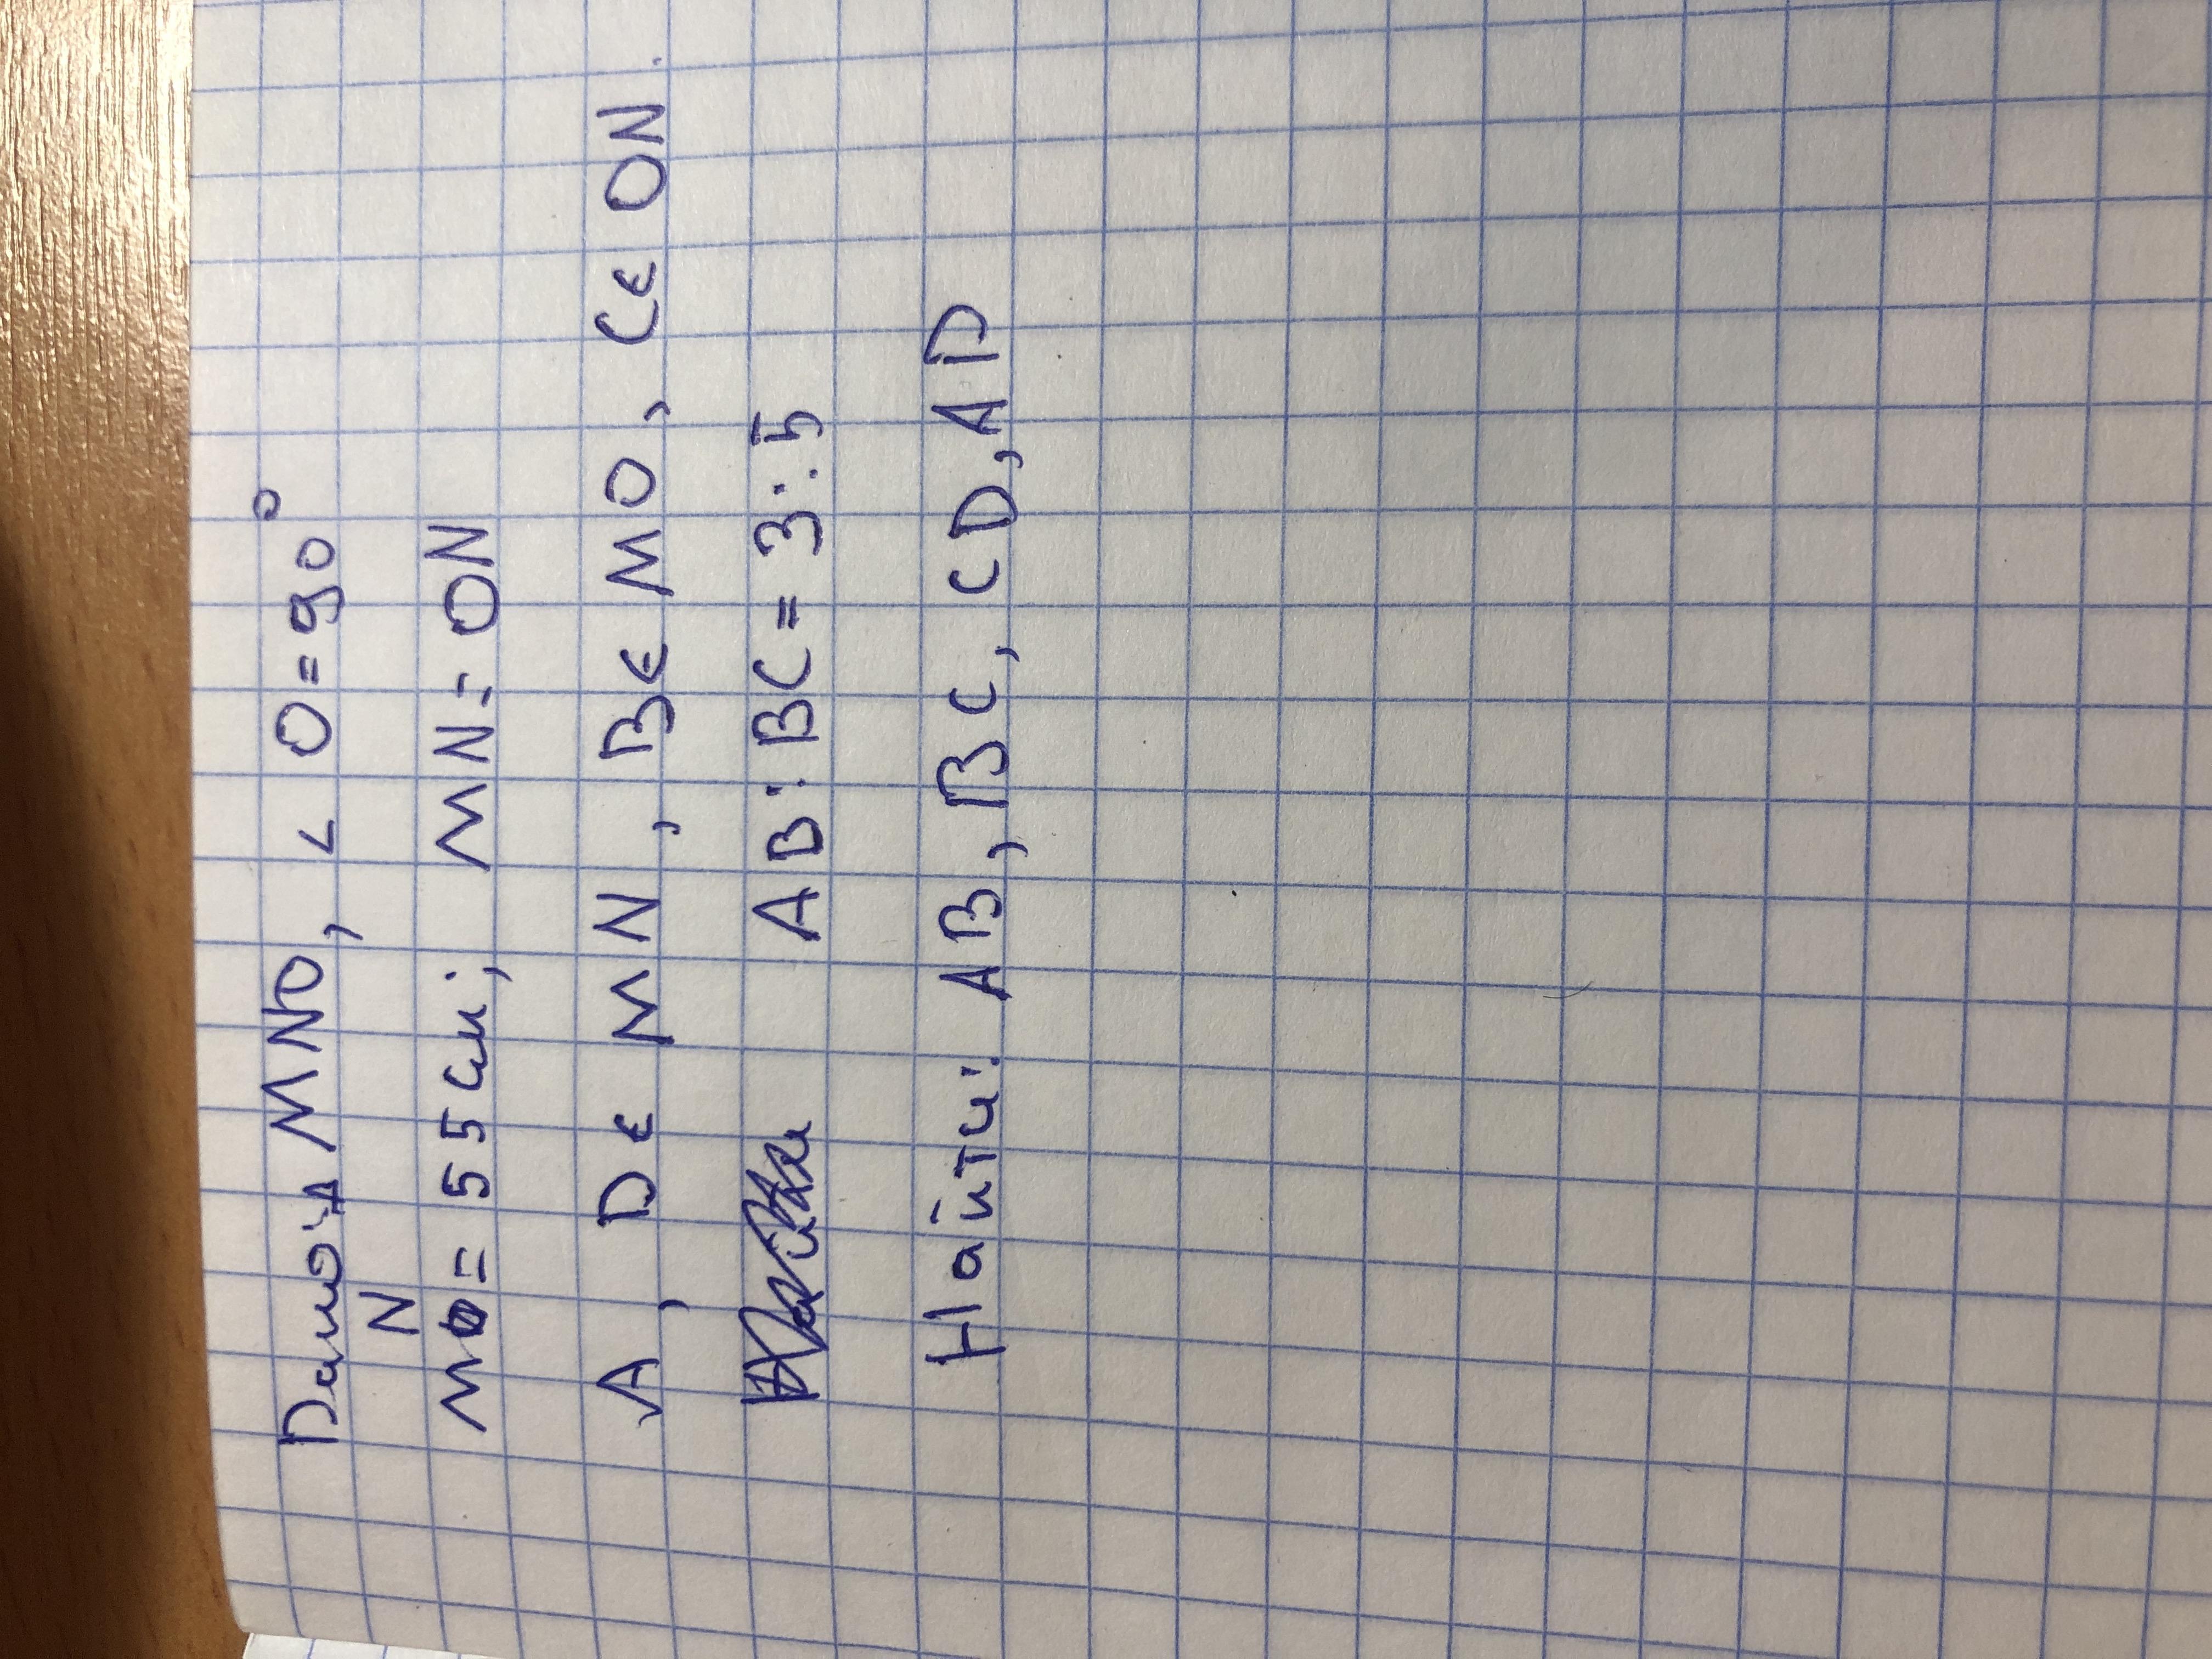 Дано: Δ MNO, < O = 90°
N
M = 55 см; MN = ON
A, D ϵ MN, B ϵ MO, C ϵ ON.
AB : BC = 3 : 5
Найти: AB, BC, CD, AD